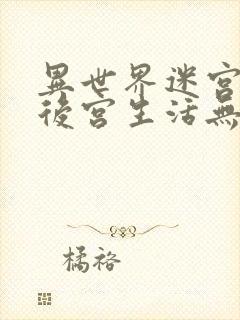 異世界迷宮
後宮生活無
橘祐